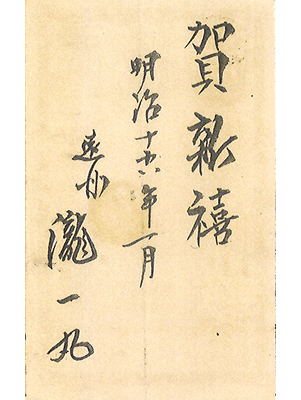 賀新禧
明治十六年一月
遠州 瀧一丸